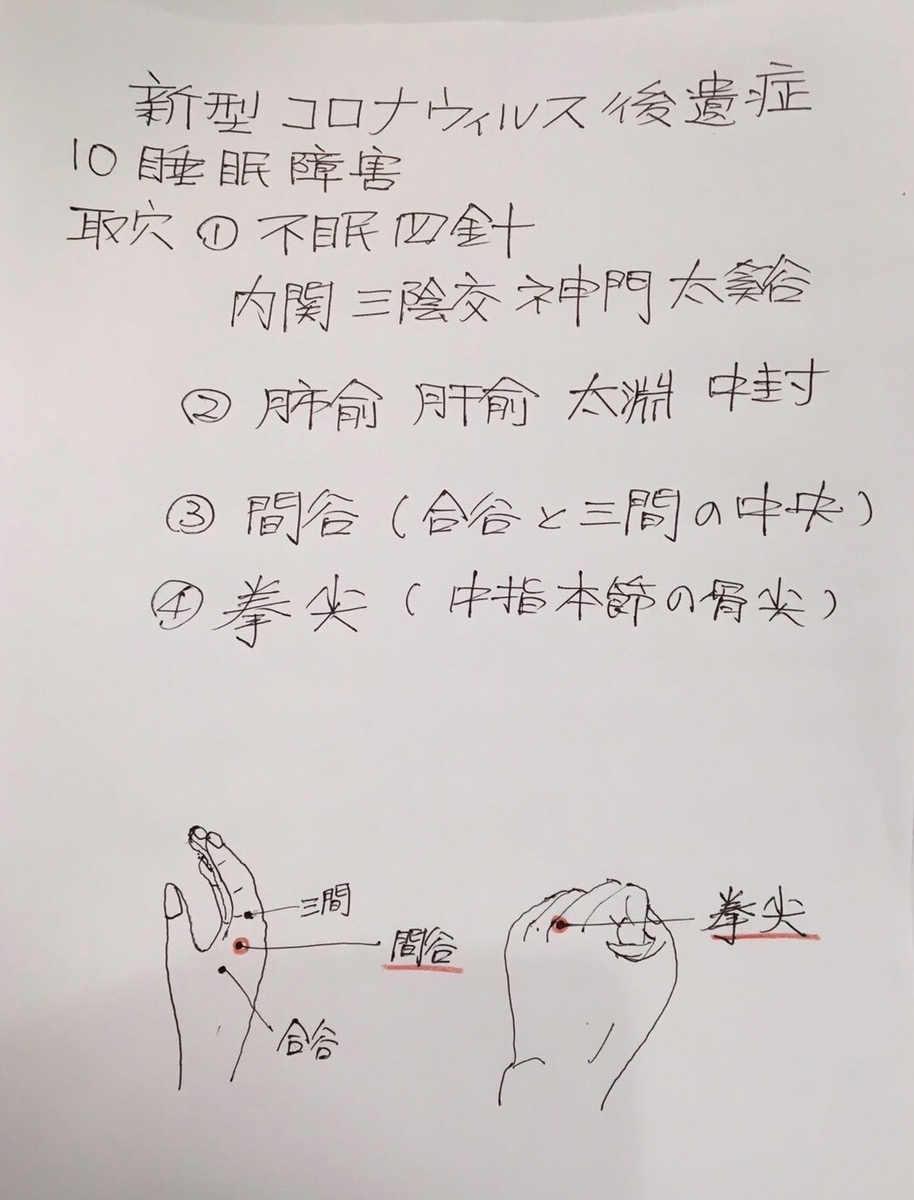 新型コロナウィルス後遺症
10 睡眠障害
取穴 ① 不眠四針
内関 三陰交 神門 太谿
② 肺俞 肝俞 太淵 中封
③ 間谷（合谷と三間の中央）
④ 拳尖（中指本節の骨尖）
三間
間谷
合谷
拳尖